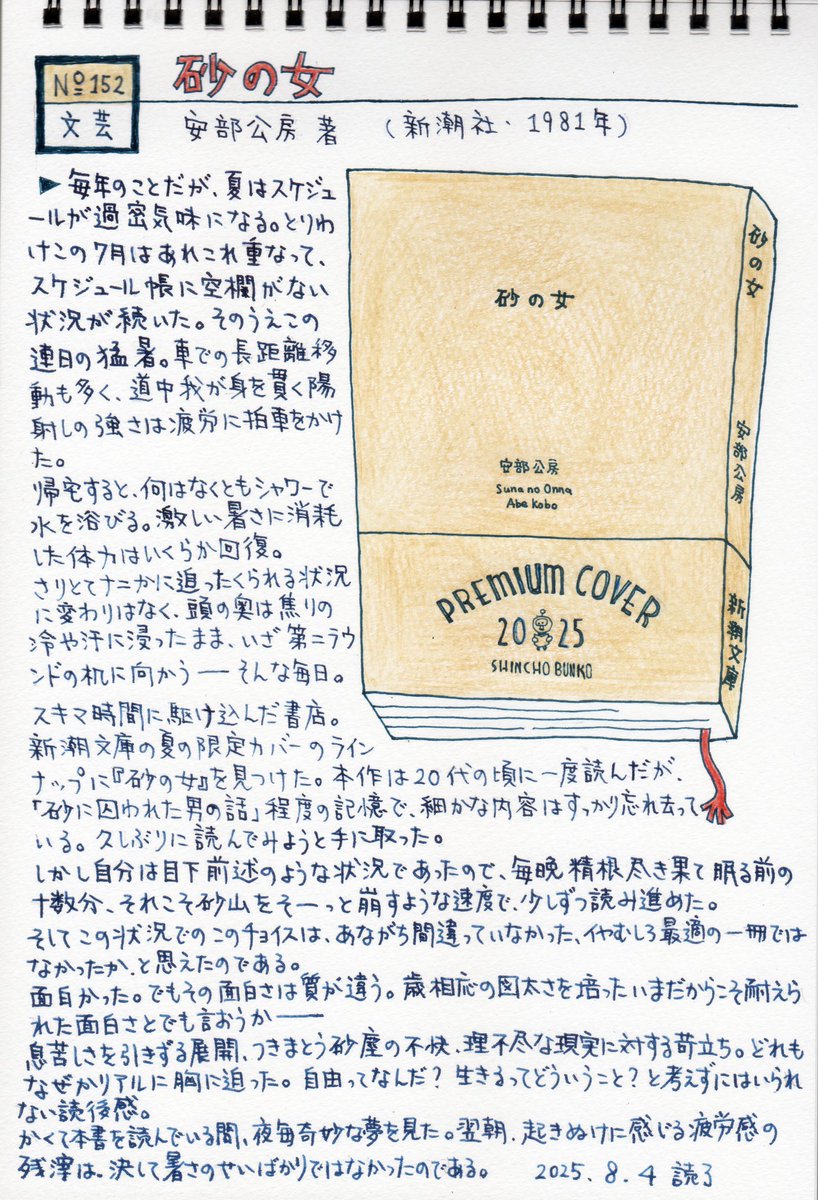 No 152
文芸
砂の女
安部公房 著 (新潮社・1981年)
▶毎年のことだが、夏はスケジュ
ールが過密気味になる。とりわ
けこの7月はあれこれ重なって、
スケジュール帳に空欄がない
状況が続いた。そのうえこの
連日の猛暑。車での長距離移
動も多く、道中我が身を貫く陽
射しの強さは疲労に拍車をかけ
た。
帰宅すると、何はなくともシャワーで
水を浴びる。激しい暑さに消耗
した体力はいくらか回復。
さりとてナニかに追ったくられる状況
に変わりはなく、頭の奥は焦りの
冷や汗に浸ったまま、いざ第二ラウ
ンドの机に向かう――そんな毎日。
スキマ時間に駆け込んだ書店。
新潮文庫の夏の限定カバーのライン
ナップに『砂の女』を見つけた。本作は20代の頃に一度読んだが、
「砂に囚われた男の話」程度の記憶で、細かな内容はすっかり忘れ去って
いる。久しぶりに読んでみようと手に取った。
しかし自分は目下前述のような状況であったので、毎晩精根尽き果て眠る前の
十数分、それこそ砂山をそーっと崩すような速度で、少しずつ読み進めた。
そしてこの状況でのこのチョイスは、あながち間違っていなかった、イヤむしろ最適の一冊では
なかったか、と思えたのである。
面白かった。でもその面白さは質が違う。歳相応の図太さを培ったいまだからこそ耐えら
れた面白さとでも言おうか――
息苦しさを引きずる展開、つきまとう砂塵の不快、理不尽な現実に対する苛立ち。どれも
なぜかリアルに胸に迫った。自由ってなんだ？生きるってどういうこと？と考えずにはいられ
ない読後感。
かくて本書を読んでいる間、夜毎奇妙な夢を見た。翌朝、起きぬけに感じる疲労感の
残滓は、決して暑さのせいばかりではなかったのである。 2025.8.4 読了
砂の女
安部公房
Suna no Onna
Abe Kobo
PREMIUM COVER
2025
SHINCHO BUNKO
砂の女
安部公房
新潮文庫